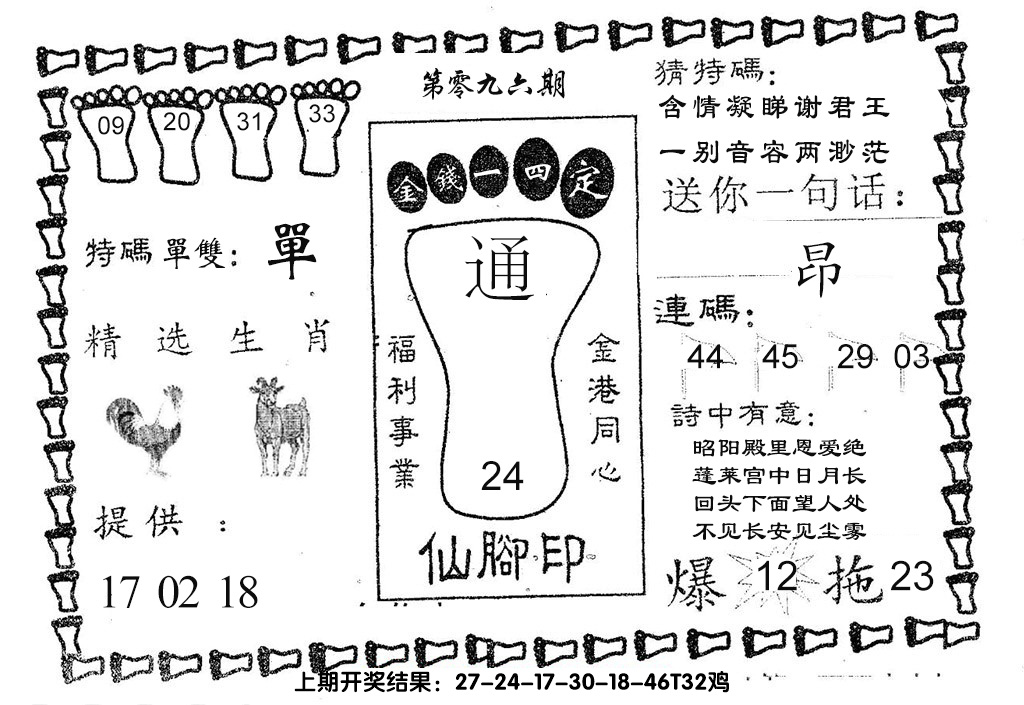 第零九六期
09 20 31 33
特碼單雙：單
精选生肖
提供：
17 02 18
金錢一四定
通
福利事業
金港同心
24
仙腳印
猜特碼：
含情凝睇谢君王
一别音容两渺茫
送你一句话：
昂
連碼：
44 45 29 03
詩中有意：
昭阳殿里恩爱绝
蓬莱宫中日月长
回头下面望人处
不见长安见尘雾
爆 12 拖 23
上期开奖结果：27-24-17-30-18-46T32鸡